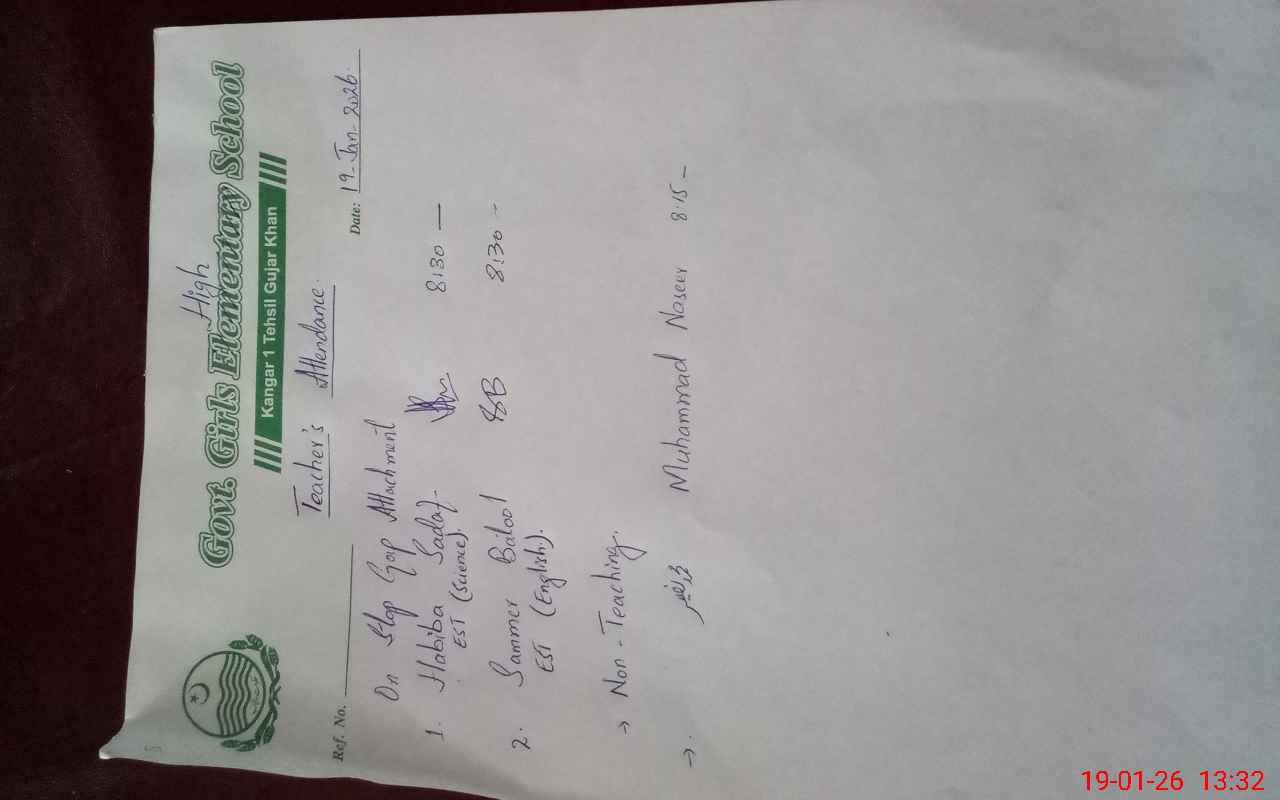 High
Govt. Girls Elementary School
Kangar 1 Tehsil Gujar Khan
Ref. No. Date: 19-Jan-2026.
Teacher's Attendance.
On Stop Gap Attachment
1. Habiba Sadaf 8:30 —
EST (Science).
2. Sammer Batool SB 8:30 -
EST (English).
→ Non-Teaching.
→. محمد نصیر Muhammad Naseer 8:15 -
19-01-26 13:32